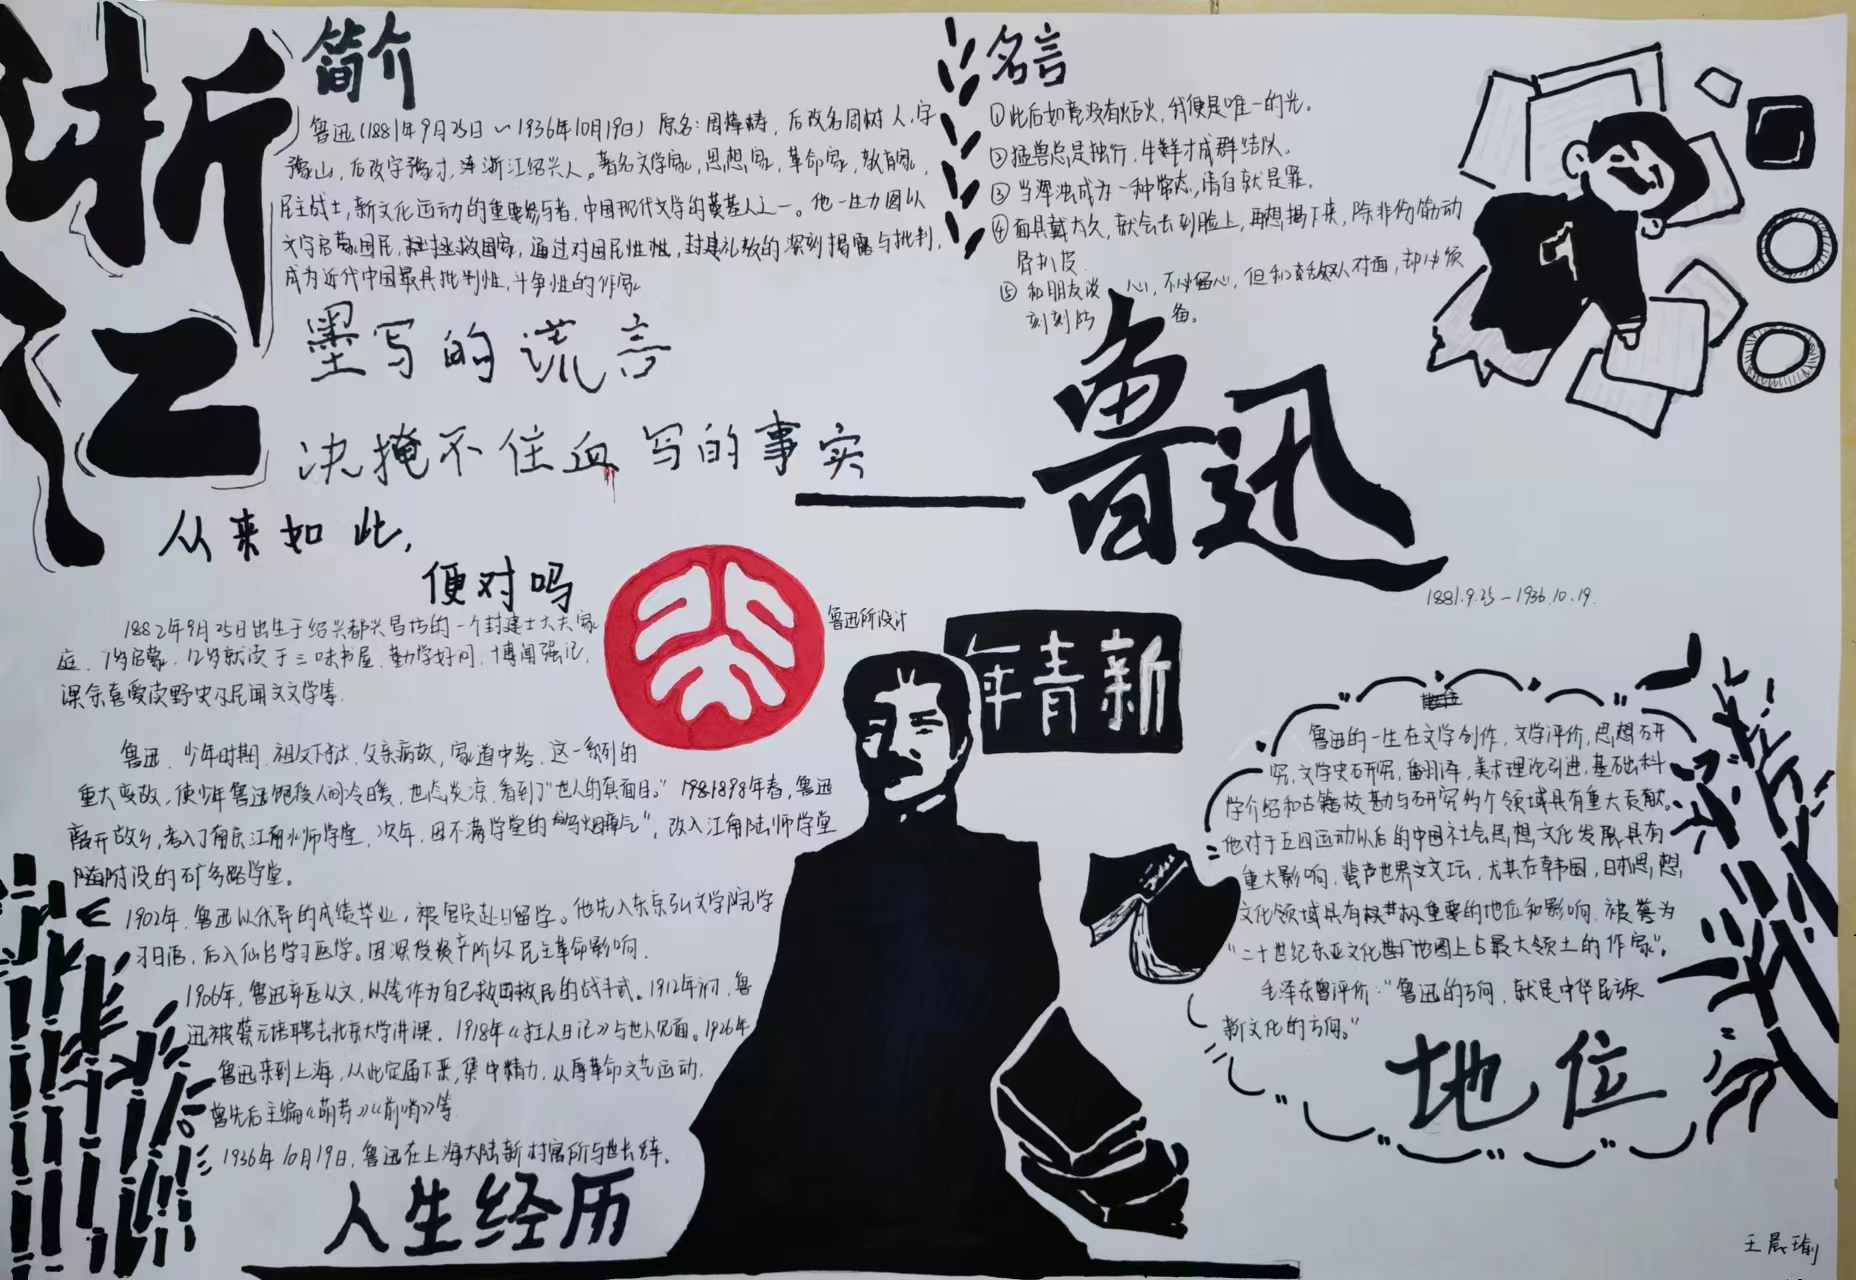 浙江
简介
鲁迅(1881年9月25日~1936年10月19日)原名:周樟树,后改名周树人,字
豫山,后改字豫才,浙江绍兴人。著名文学家,思想家,革命家,教育家,
民主战士,新文化运动的重要参与者,中国现代文学的奠基人之一。他一生力图以
文字启蒙国民,拯救国家,通过对国民性,封建礼教的深刻揭露与批判,
成为近代中国最具批判性,斗争性的作家
墨写的谎言
决掩不住血写的事实
从来如此,
便对吗
名言
①此后如竟没有炬火,我便是唯一的光。
②猛兽总是独行,牛群才成群结队。
③当浑浊成为一种常态,清白就是罪。
④面具戴太久,就会长到脸上,再想揭下来,除非伤筋动
骨扒皮.
⑤和朋友谈心,不必留心,但和敌人对面,却必须
刻刻防备。
鲁迅
1881.9.25—1936.10.19.
1882年9月25日出生于绍兴都昌坊的一个封建士大夫家
庭.7岁启蒙.12岁就读于三味书屋.勤学好问,博闻强记,
课余喜爱读野史
鲁迅所设计
新青年
鲁迅.少年时期.祖父下狱.父亲病故,家道中落,这一系列的
重大变故,使少年鲁迅饱受人间冷暖,世态炎凉,看到了"世人的真面目。"1898年春,鲁迅
离开故乡,考入了南京江南水师学堂,次年,因不满学堂的"乌烟瘴气",改入江南陆师学堂
附设的矿务路学堂。
1902年.鲁迅以优异的成绩毕业,被官员赴日留学。他先入东京弘文学院学
习日语,后入仙台学习医学。因深受资产阶级民主革命影响.
1906年,鲁迅弃医从文,以笔作为自己救国救民的战斗武。1912年初,鲁
迅被蔡元培聘去北京大学讲课.1918年《狂人日记》与世人见面。1926年
鲁迅来到上海,从此定居下来,集中精力,从事革命文艺运动,
曾先后主编《萌芽》《前哨》等
1936年10月19日,鲁迅在上海大陆新村寓所与世长辞。
人生经历
鲁迅的一生在文学创作,文学评价,思想研
究,文学史研究,翻译,美术理论引进,基础科
学介绍和古籍校勘与研究多个领域具有重大贡献。
他对于五四运动以后的中国社会思想文化发展具有
重大影响,蜚声世界文坛,尤其在韩国,日本思想,
文化领域具有极其重要的地位和影响.被誉为
"二十世纪东亚文化地图上占最大领土的作家"。
毛泽东曾评价:"鲁迅的方向,就是中华民族
新文化的方向。"
地位
王晨瑜